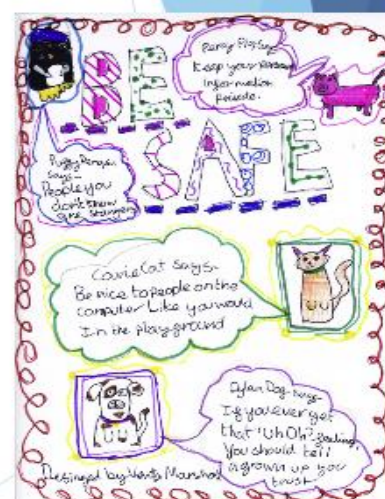 BE
SAFE
Percy Pig Says
Keep your Personal
Information
Private.
says-
People you
don't know
are strangers
Cat says-
Be nice to people on the
computer Like you would
In the playground
Dylan Dog says-
If you ever get
that "Uh Oh" feeling,
You should tell
a grown up you
trust.
by